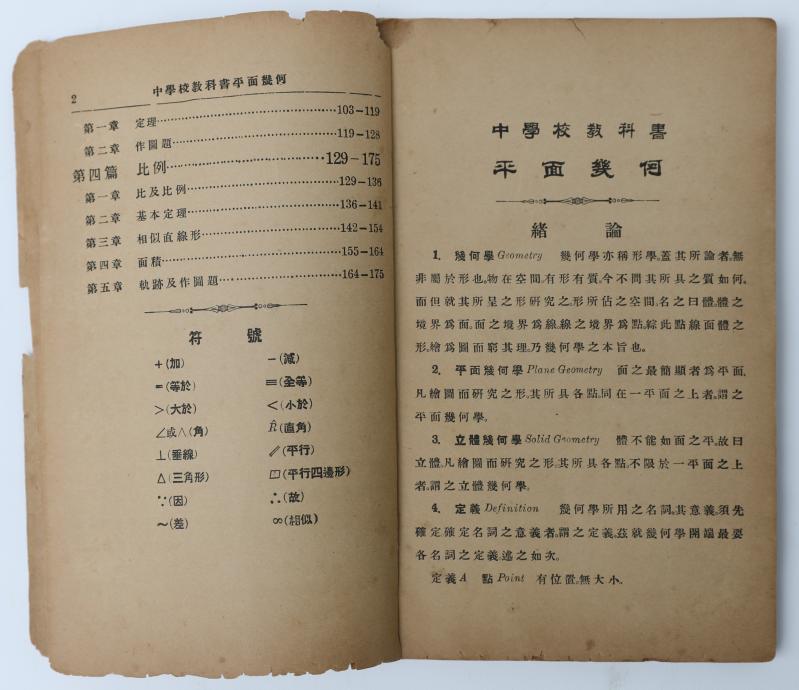 2
中學校教科書平面幾何
第一章 定理……103—119
第二章 作圖題……119—128
第四篇 比例……129—175
第一章 比及比例……129—136
第二章 基本定理……136—141
第三章 相似直線形……142—154
第四章 面積……155—164
第五章 軌跡及作圖題……164—175
符號
+(加) −(減)
=(等於) ≡(全等)
>(大於) <(小於)
∠或∧(角) R̂(直角)
⊥(垂線) ⫽(平行)
△(三角形) ▱(平行四邊形)
∵(因) ∴(故)
～(差) ∞(相似)
中學校教科書
平面幾何
緒論
1. 幾何學Geometry 幾何學亦稱形學。蓋其所論者。無
非屬於形也。物在空間。有形有質。今不問其所具之質如何。
而但就其所呈之形研究之。形所佔之空間。名之曰體。體之
境界爲面。面之境界爲線。線之境界爲點。綜此點線面體之
形。繪爲圖而窮其理。乃幾何學之本旨也。
2. 平面幾何學Plane Geometry 面之最簡顯者爲平面。
凡繪圖而研究之形。其所具各點。同在一平面之上者。謂之
平面幾何學。
3. 立體幾何學Solid Geometry 體不能如面之平。故曰
立體。凡繪圖而研究之形。其所具各點。不限於一平面之上
者。謂之立體幾何學。
4. 定義Definition 幾何學所用之名詞。其意義。須先
確定。確定名詞之意義者。謂之定義。茲就幾何學開端最要
各名詞之定義。述之如次。
定義A 點Point 有位置。無大小。